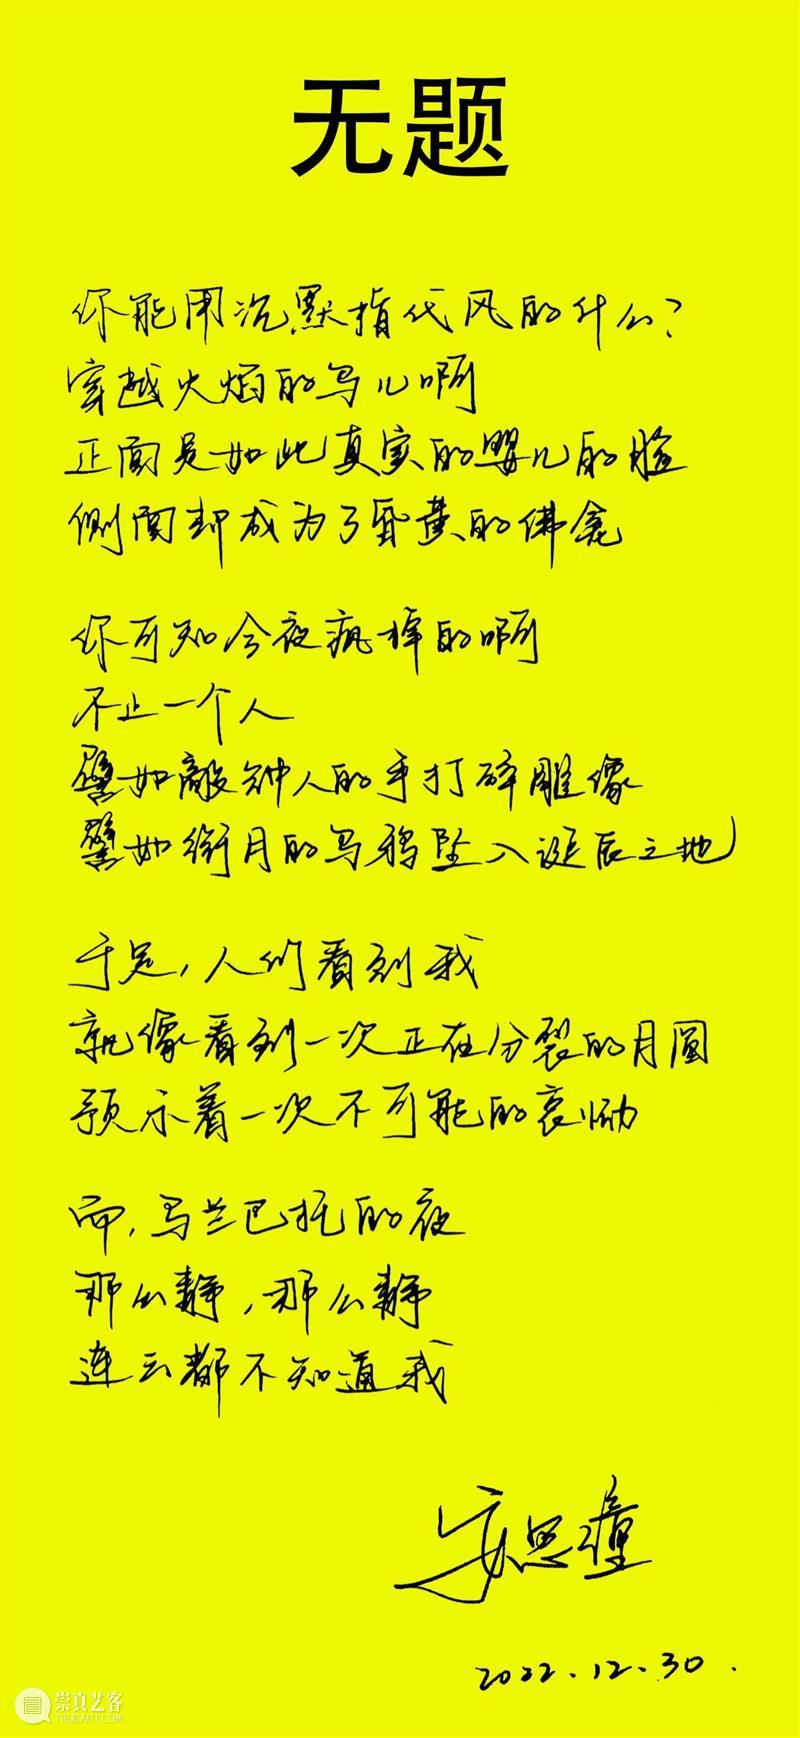 无题
你能用沉默指代风的什么?
穿越火焰的鸟儿啊
正面是如此真实的婴儿的脸
侧面却成为了昏黄的佛龛
你可知今夜疯掉的啊
不止一个人
譬如敲钟人的手打碎雕像
譬如衔月的乌鸦坠入诞辰之地
于是,人们看到我
就像看到一次正在分裂的月圆
预示着一次不可能的哀恸
而,乌兰巴托的夜
那么静,那么静
连云都不知道我
2022.12.30.
崇真艺客
TRUEART.COM